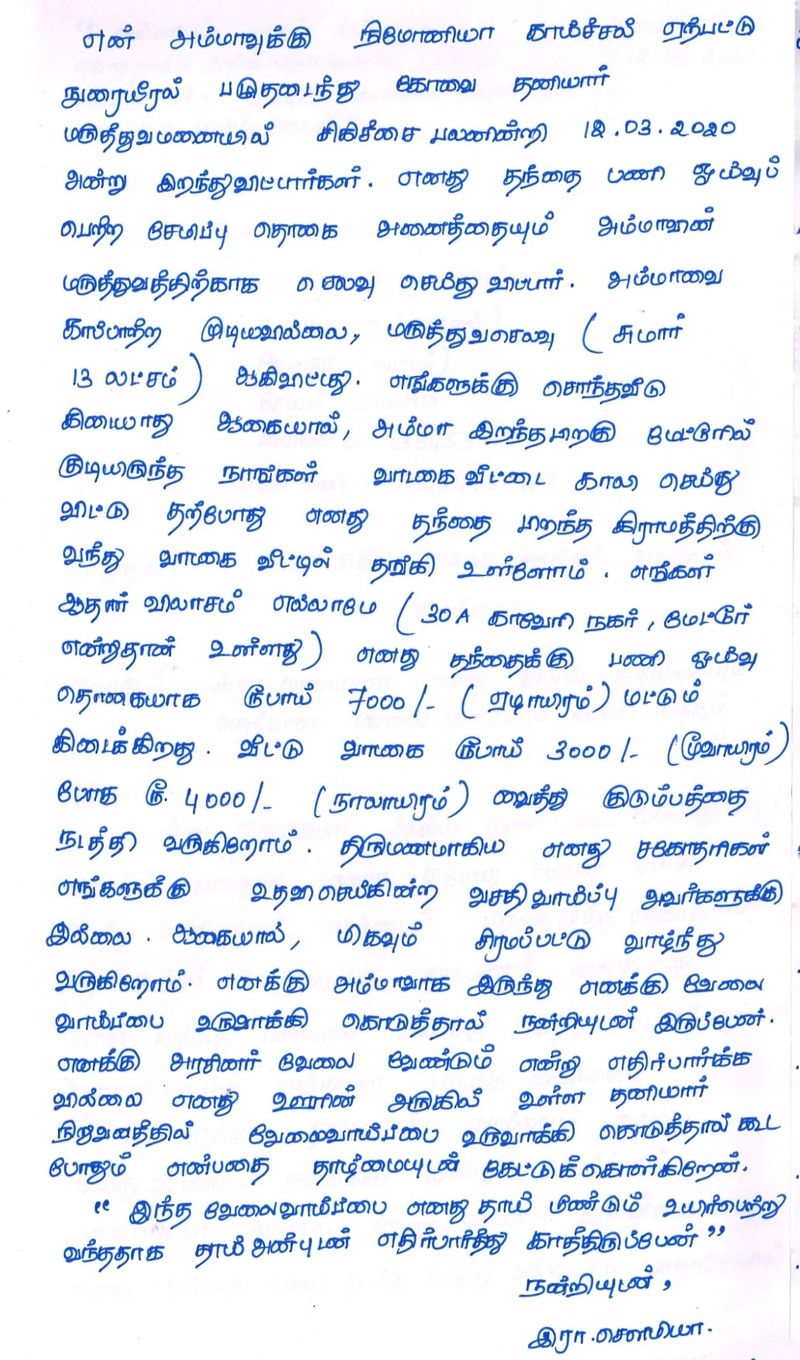 என் அம்மாவுக்கு நிமோனியா காய்ச்சல் ஏற்பட்டு
நுரையீரல் பழுதடைந்து கோவை தனியார்
மருத்துவமனையில் சிகிச்சை பலனின்றி 12.03.2020
அன்று இறந்துவிட்டார்கள். எனது தந்தை பணி ஓய்வுப்
பெற்ற சேமிப்பு தொகை அனைத்தையும் அம்மாவின்
மருத்துவத்திற்காக செலவு செய்து விட்டார். அம்மாவை
காப்பாற்ற முடியவில்லை, மருத்துவசெலவு ( சுமார்
13 லட்சம் ) ஆகிவிட்டது. எங்களுக்கு சொந்தவீடு
கிடையாது ஆகையால், அம்மா இறந்தபிறகு மேட்டூரில்
குடியிருந்த நாங்கள் வாடகை வீட்டை காலி செய்து
விட்டு தற்போது எனது தந்தை பிறந்த கிராமத்திற்கு
வந்து வாடகை வீட்டில் தங்கி உள்ளோம். எங்கள்
ஆதார் விலாசம் எல்லாமே ( 30A காவேரி நகர், மேட்டூர்
என்றுதான் உள்ளது ) எனது தந்தைக்கு பணி ஓய்வு
தொகையாக ரூபாய் 7000/- ( ஏழாயிரம் ) மட்டும்
கிடைக்கிறது. வீட்டு வாடகை ரூபாய் 3000/- (மூவாயிரம்)
போக ரூ. 4000/- (நாலாயிரம் ) வைத்து குடும்பத்தை
நடத்தி வருகிறோம். திருமணமாகிய எனது சகோதரிகள்
எங்களுக்கு உதவிசெய்கின்ற வசதி வாய்ப்பு அவர்களுக்கு
இல்லை. ஆகையால், மிகவும் சிரமப்பட்டு வாழ்ந்து
வருகிறோம். எனக்கு அம்மாவாக இருந்து எனக்கு வேலை
வாய்ப்பை உருவாக்கி கொடுத்தால் நன்றியுடன் இருப்பேன்.
எனக்கு அரசினர் வேலை வேண்டும் என்று எதிர்பார்க்க
வில்லை எனது ஊரின் அருகில் உள்ள தனியார்
நிறுவனத்தில் வேலைவாய்ப்பை உருவாக்கி கொடுத்தால் கூட
போதும் என்பதை தாழ்மையுடன் கேட்டுக்கொள்கிறேன்.
“ இந்த வேலைவாய்ப்பை எனது தாய் மீண்டும் உயிர்பெற்று
வந்ததாக தாய் அன்புடன் எதிர்பார்த்து காத்திருப்பேன் ”
நன்றியுடன்,
இரா.சௌமியா.